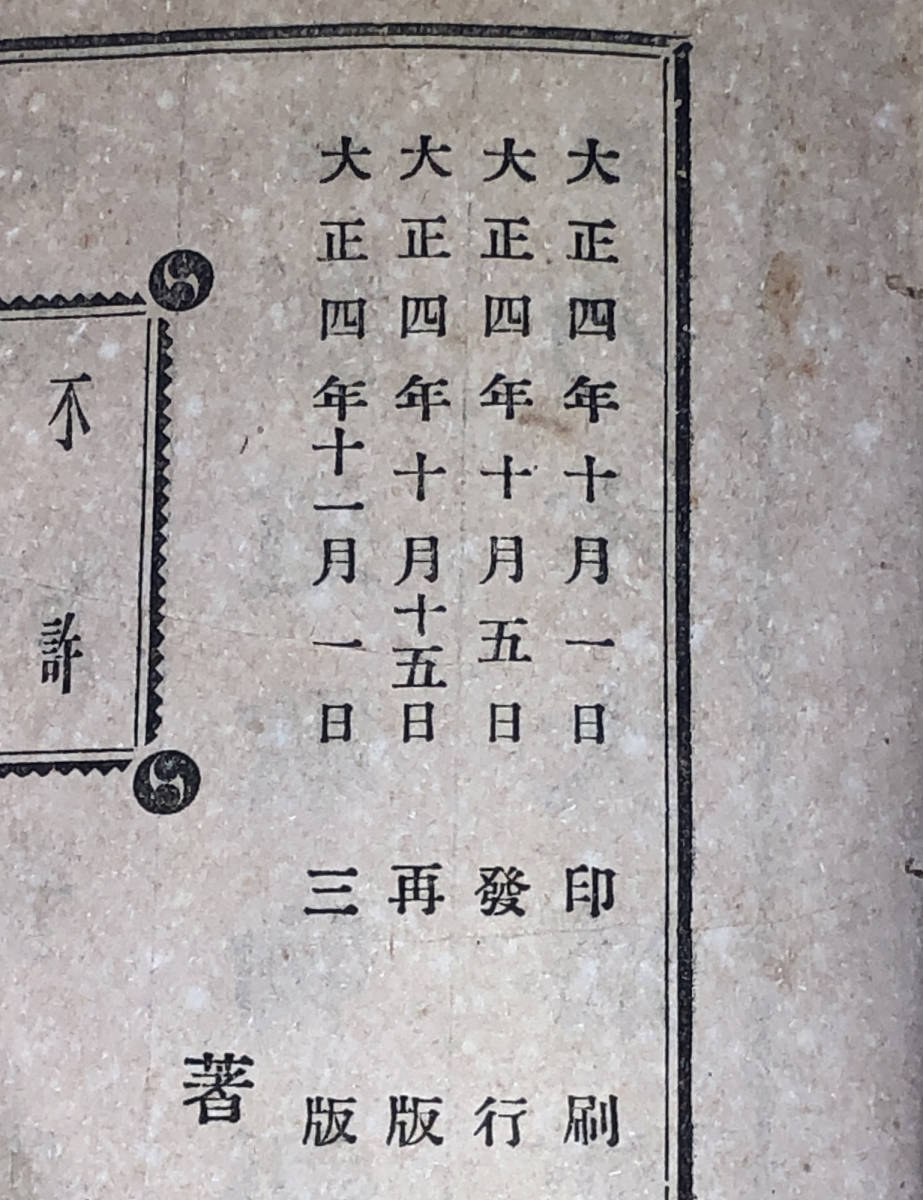 大正四年十月一日印刷
大正四年十月五日發行
大正四年十月十五日再版
大正四年十一月一日三版
著
不許